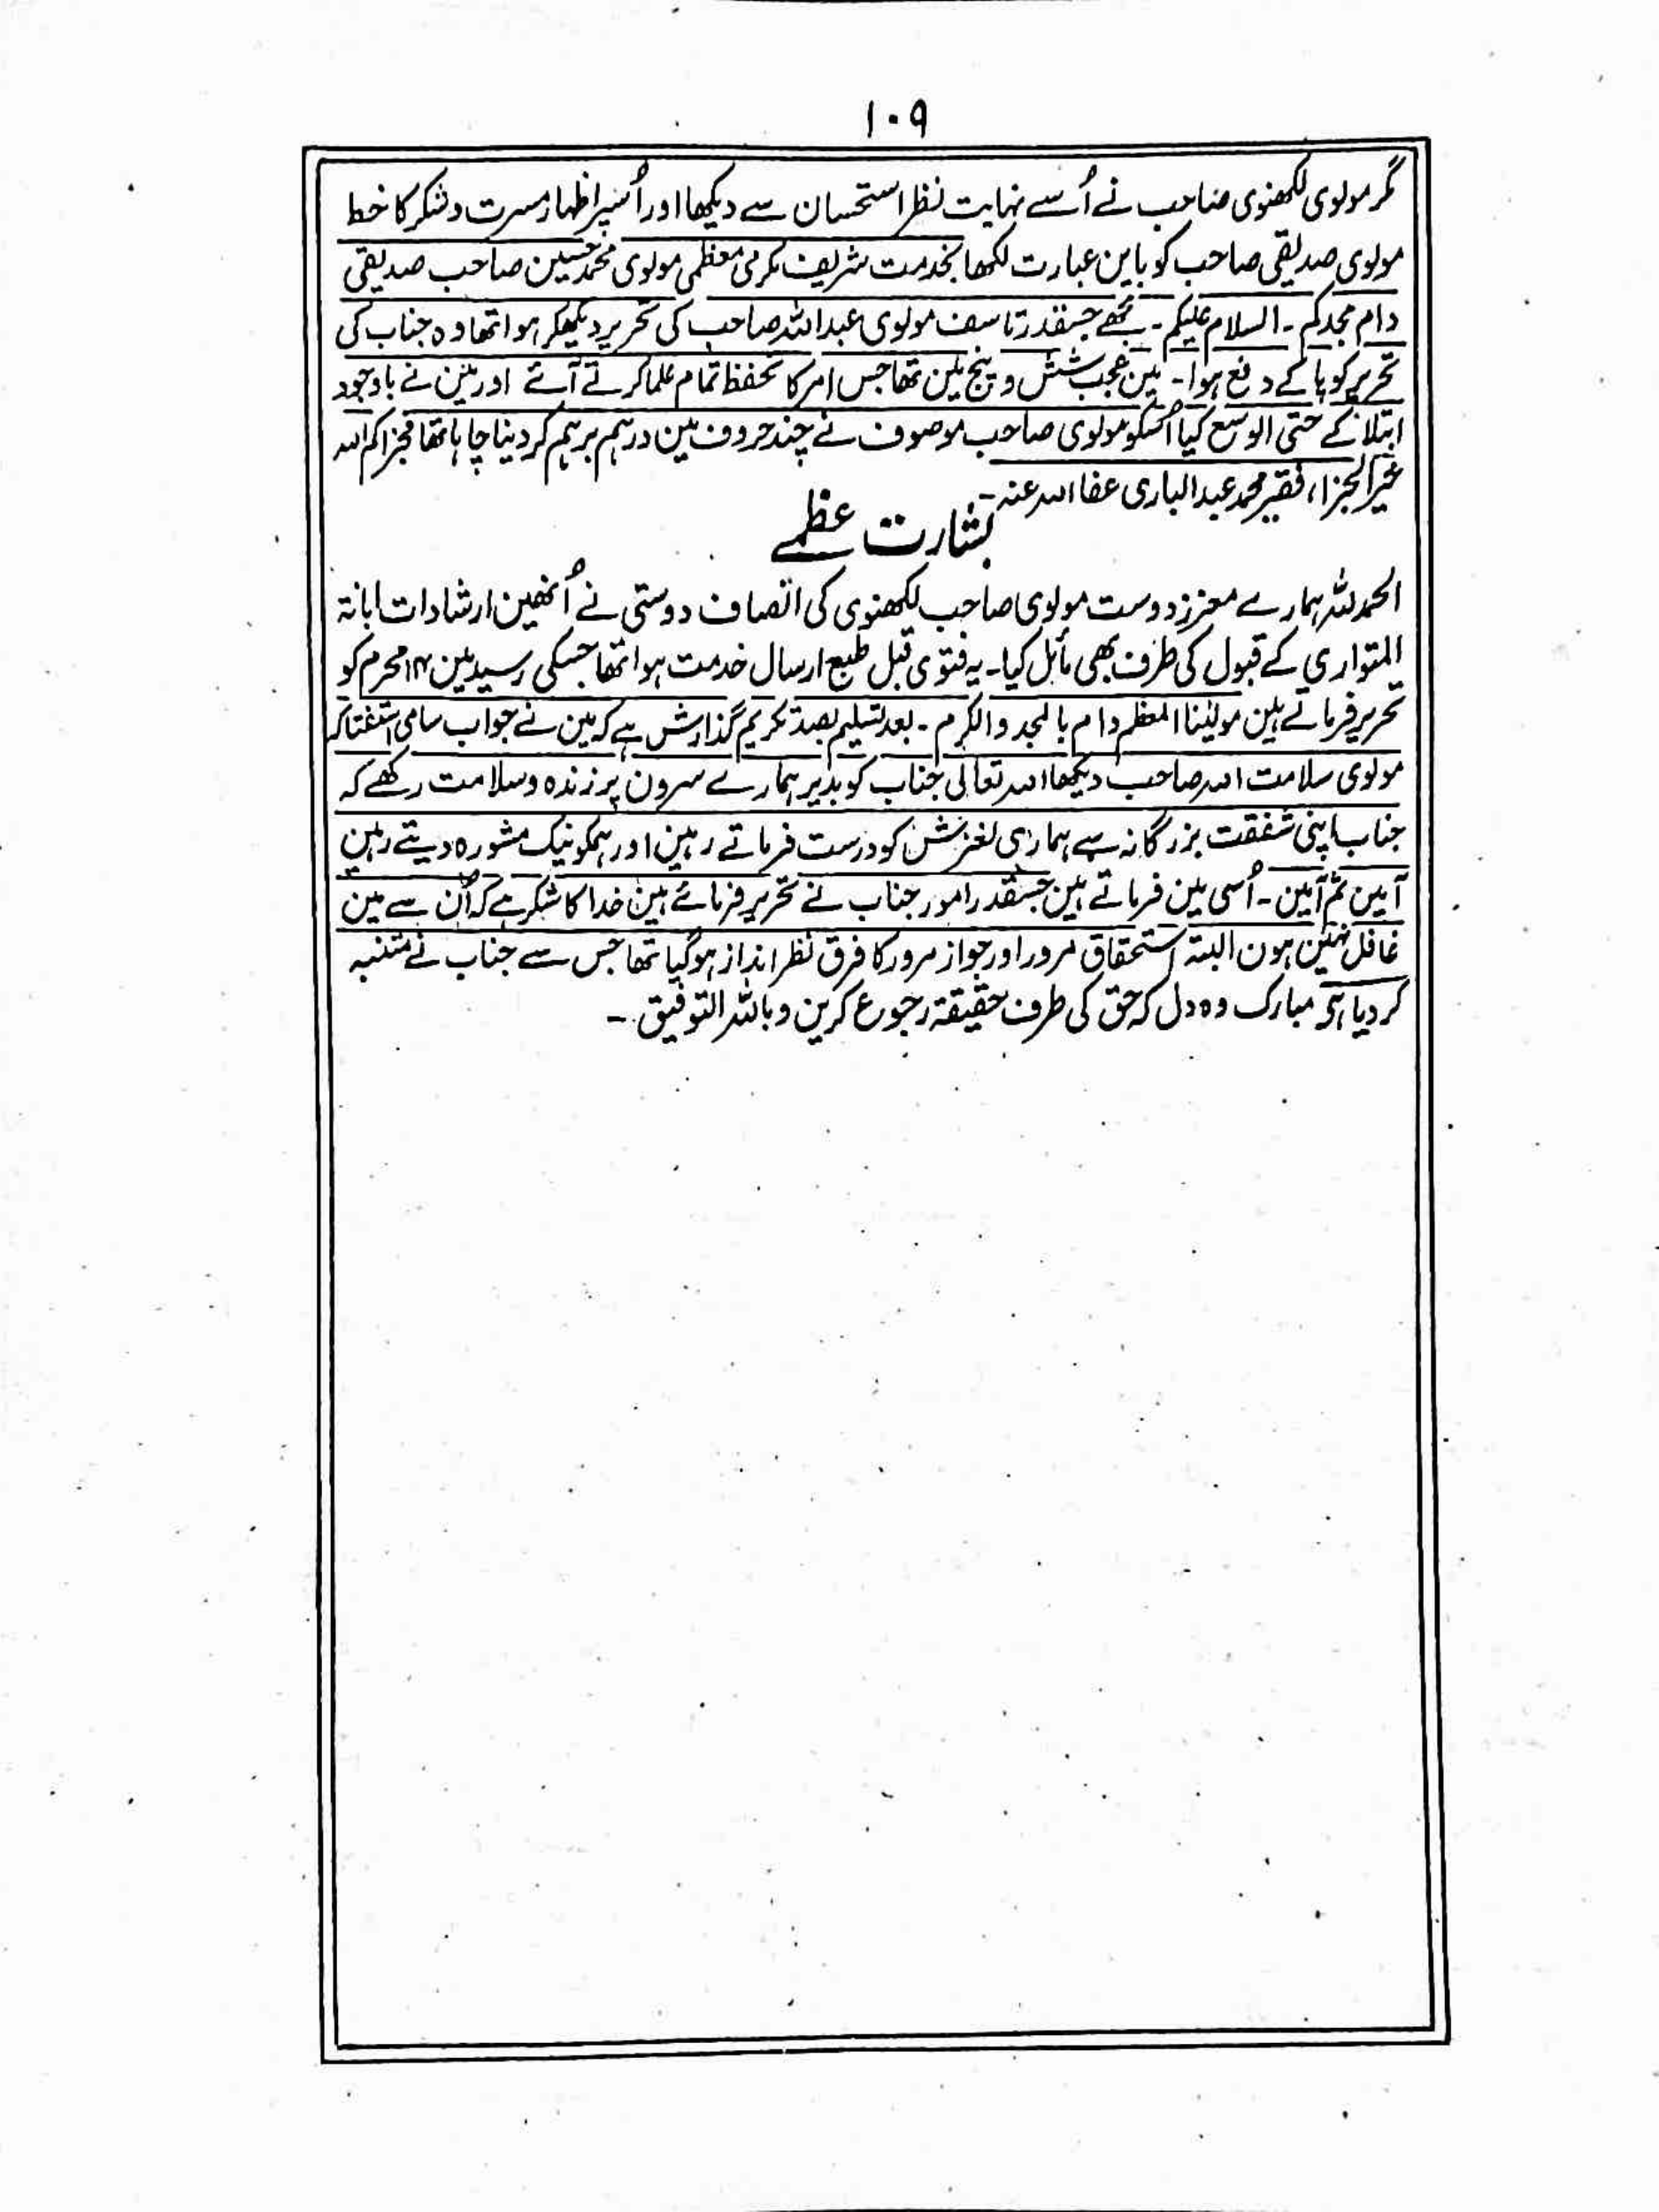 ۱۰۹
مگر مولوی لکھنوی صاحب نے اُسے نہایت نظر استحسان سے دیکھا اور اُسپر اظہار مسرت و شکر کا خط
مولوی صدیقی صاحب کو باین عبارت لکھا بخدمت شریف مکرمی معظمی مولوی محمد حسین صاحب صدیقی
دام مجدکم۔ السلام علیکم۔ مجھے جسقدر تاسف مولوی عبداللہ صاحب کی تحریر دیکھکر ہوا تھا وہ جناب کی
تحریر کو پا کے دفع ہوا۔ مین عجب شش و پنج مین تھا جس امر کا تحفظ تمام علما کرتے آئے اور مین نے باوجود
ابتلا کے حتی الوسع کیا اُسکو مولوی صاحب موصوف نے چند حروف مین درہم برہم کر دینا چاہا تھا فجزاکم اللہ
خیر الجزاء، فقیر محمد عبدالباری عفا اللہ عنہ۔
بشارت عظمے
الحمد للہ ہمارے معزز دوست مولوی صاحب لکھنوی کی انصاف دوستی نے اُنھین ارشادات ابانۃ
المتواری کے قبول کی طرف بھی مائل کیا۔ یہ فتوی قبل طبع ارسال خدمت ہوا تھا جسکی رسید مین ۱۴ محرم کو
تحریر فرماتے ہین مولینا المعظم دام بالمجد والکرم۔ بعد تسلیم بصد تکریم گذارش ہے کہ مین نے جواب سامی استفتا کہ
مولوی سلامت اللہ صاحب دیکھا اللہ تعالی جناب کو بدیر ہمارے سرون پر زندہ و سلامت رکھے کہ
جناب اپنی شفقت بزرگانہ سے ہماری لغزش کو درست فرماتے رہین اور ہمکو نیک مشورہ دیتے رہین
آمین ثم آمین۔ اُسی مین فرماتے ہین جسقدر امور جناب نے تحریر فرمائے ہین خدا کا شکر ہے کہ اُن سے مین
غافل نہین ہون البتہ استحقاق مرور اور جواز مرور کا فرق نظر انداز ہوگیا تھا جس سے جناب نے متنبہ
کر دیا ہی مبارک وہ دل کہ حق کی طرف حقیقۃ رجوع کرین و باللہ التوفیق۔